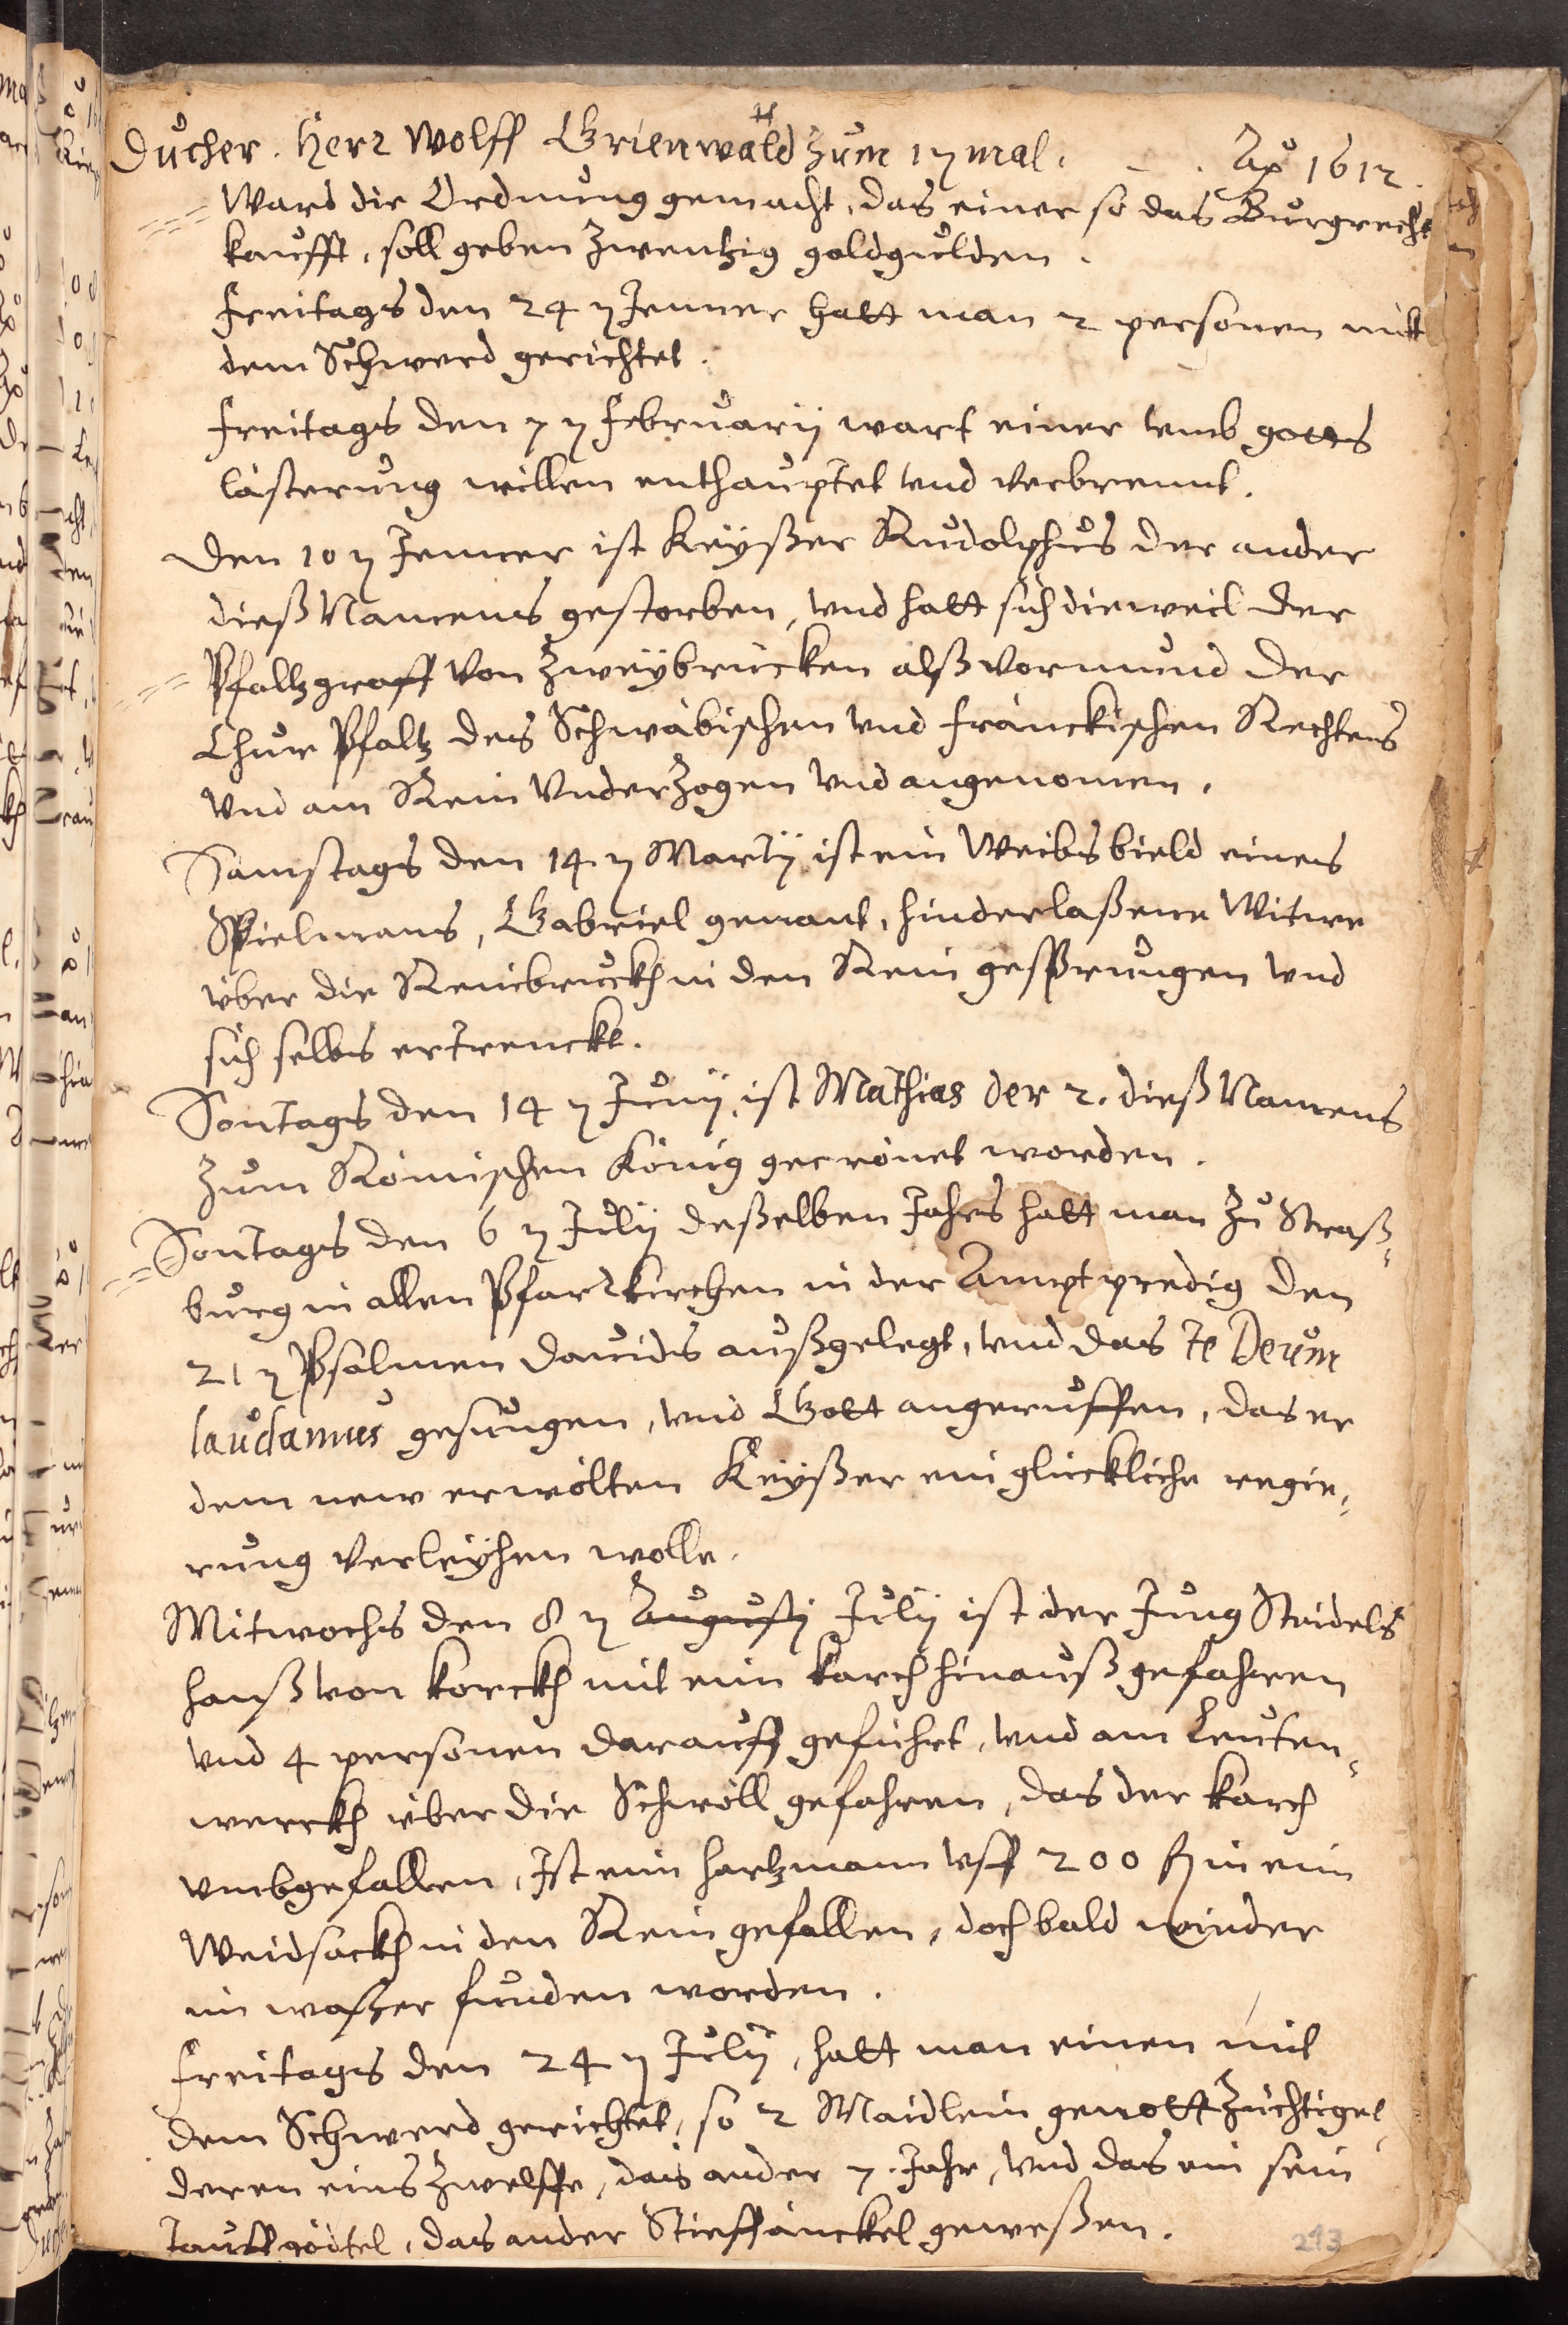 Ducher. Herr Wolff Grienwald zum 1 mal. Aō 1612.
Ward die Ordnung gemacht, das einer so das Burgrecht
kaufft, soll geben zwentzig goldgulden.
Freitags den 24 Jenner hatt man 2 personen mitt
dem Schwerd gerichtet.
Freitags den 7 Februarij wart einer umb gotts
lästerung willen enthauptet und verbrennt.
Den 10 Jenner ist Keyßer Rudolphus der ander
dieß Namens gestorben, und hatt sich dieweil der
Pfaltzgraff von Zweybrücken alß vormund der
Chur Pfaltz des Schwäbischen und fränckischen Rechtens
und am Rein underzogen und angenomen.
Samstags den 14 Martij ist ein Weibsbield eines
Spielmans, Gabriel genant, hinderlaßene Witwe
über die Reinbruckh in den Rein gesprungen und
sich selbs ertrenckt.
Sontags den 14 Junij, ist Mathias der 2. dieß Namens
zum Römischen König gecrönet worden.
Sontags den 6 Julij deßelben Jahrs hatt man zu Straß-
burg in allen Pfarrkirchen in der Amptpredig den
21 Psalmen Davids außgelegt, und das Te Deum
laudamus gesungen, und Gott angeruffen, das er
dem new erwölten Keyßer ein glückliche regie-
rung verleyhen wolle.
Mitwochs den 8 Augusti Julij ist der Jung Steidels
Hanß von Korckh mit eim karch hinauß gefahren
und 4 personen darauff geführt, und am Leuten-
werckh über die Schwöll gefahren, das der karch
umbgefallen, Ist eim Hartzmann uff 200 fl in eim
Weidsackh in den Rein gefallen, doch bald wider
im waßer funden worden.
Freitags den 24 Julij, hatt man einen mit
dem Schwerd gerichtet, so 2 Maidlein genottzüchtiget,
deren eins zwelffe, das ander 7. Jahr, und das ein sein
Tauffgödtel, das ander Stieffänckel geweßen.
293